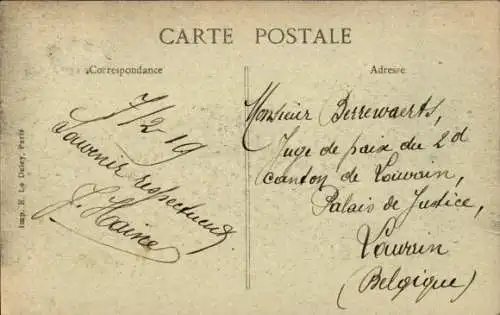 CARTE POSTALE
Correspondance
Adresse
7/2-19
Souvenir respectueux
J. Haine
Monsieur Berrewaerts,
Juge de paix du 2d
canton de Louvain,
Palais de Justice,
Louvain
(Belgique)
Imp. E. Le Deley, Paris